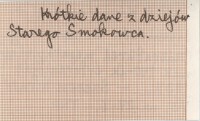 Krótkie dane z dziejów
Starego Smokowca.